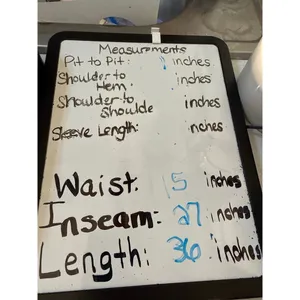 Measurements
Pit to Pit: inches
Shoulder to
Hem: inches
Shoulder to
shoulde inches
Sleeve Length: nches
Waist: 15 inches
Inseam: 27 inches
Length: 36 inches